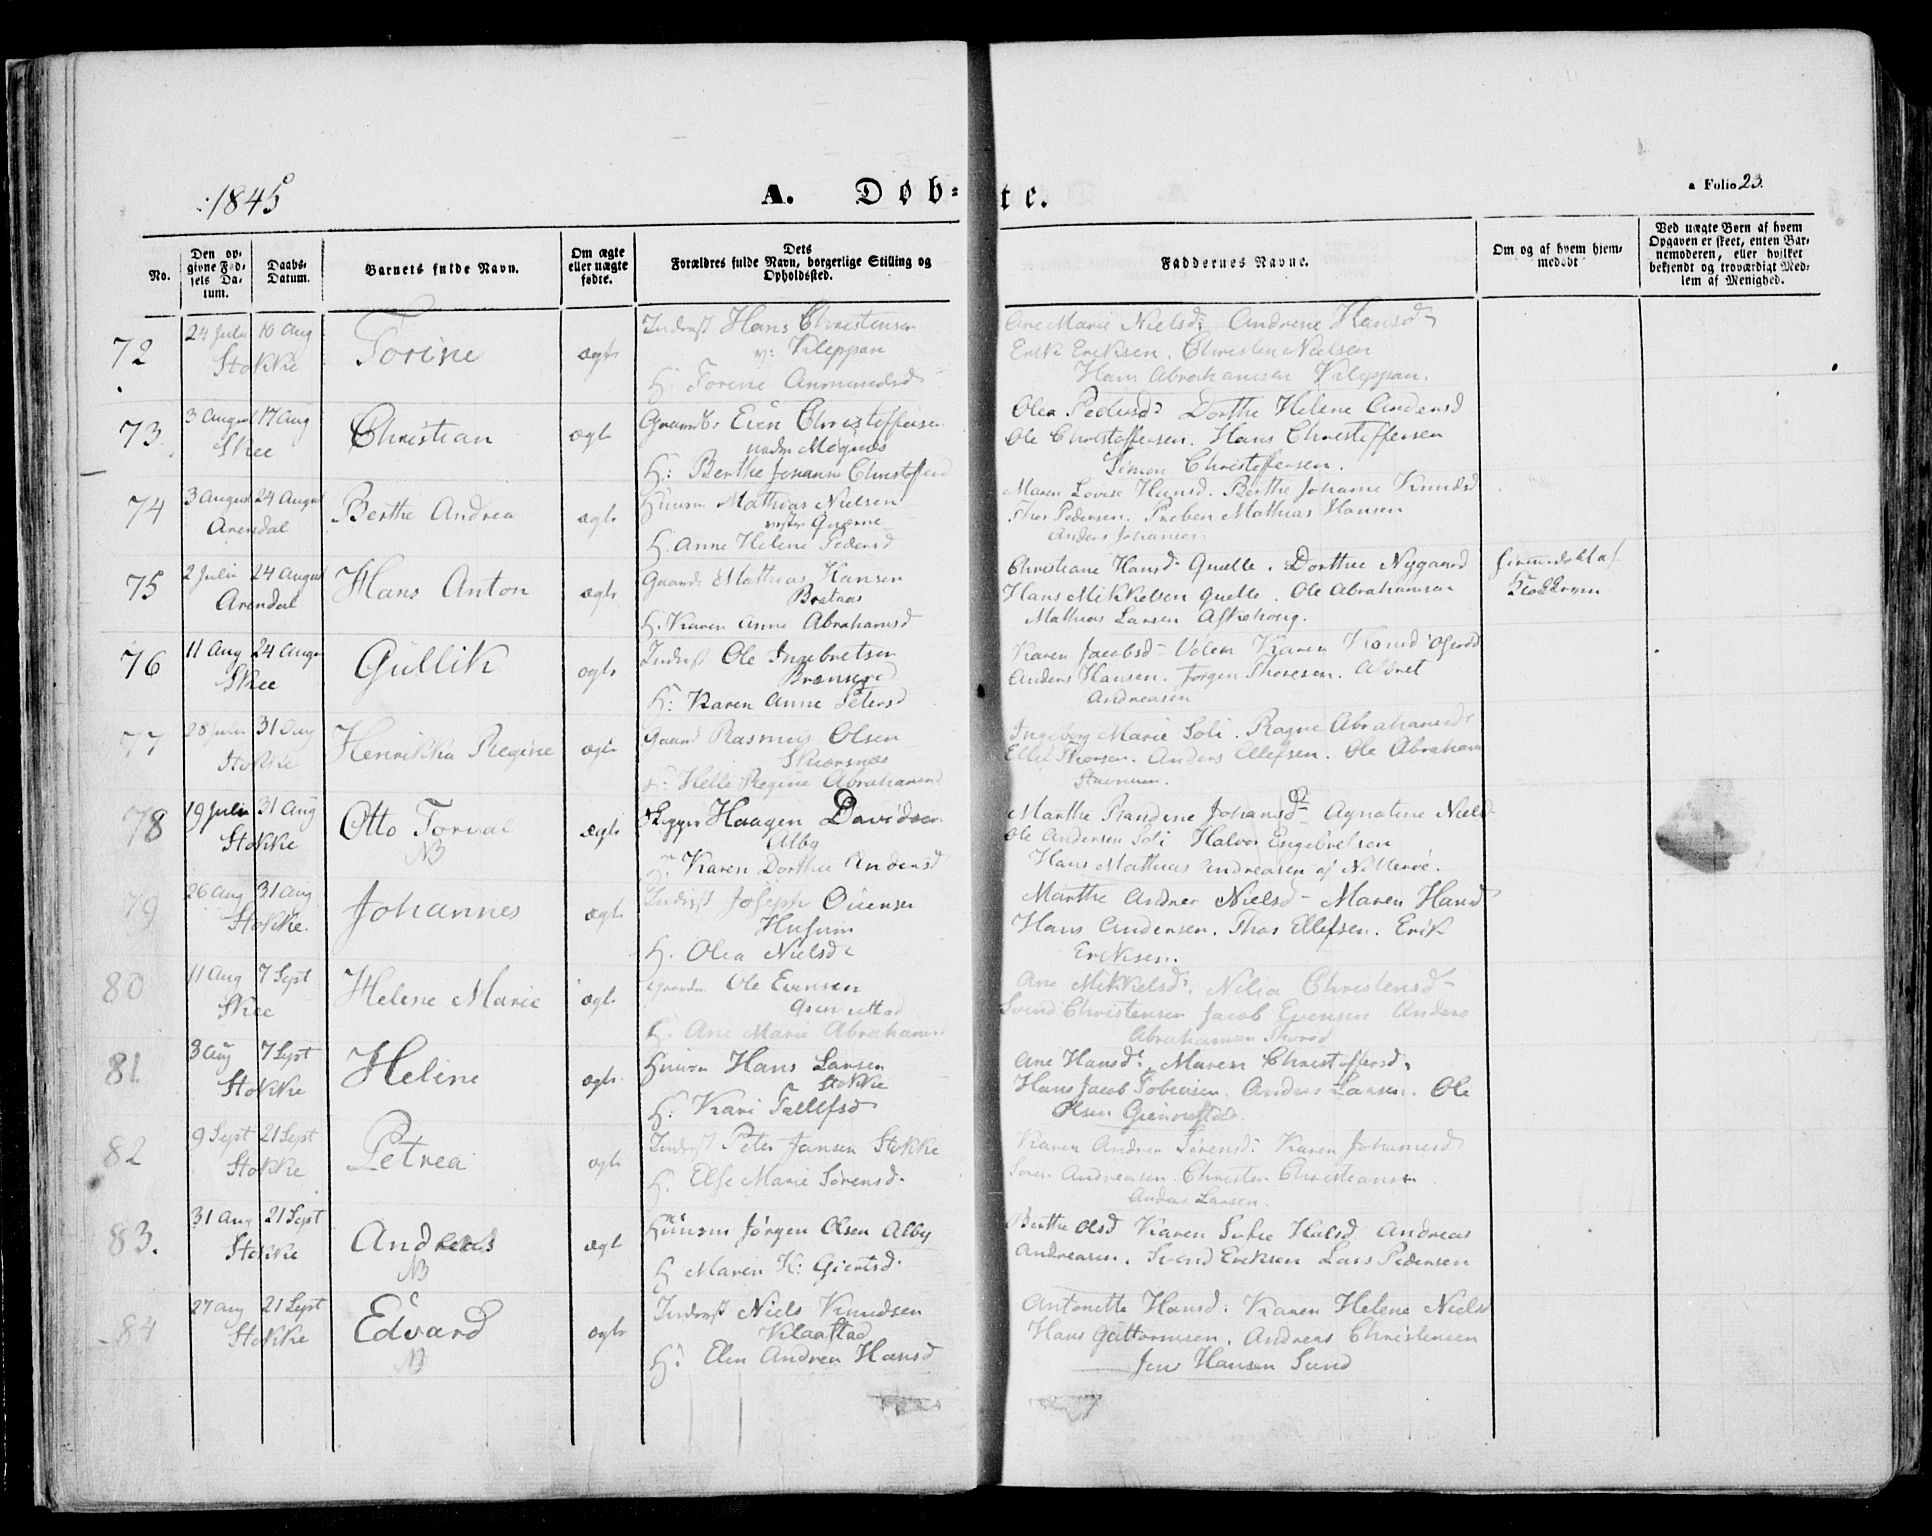 :1845
A. Døb=
te.
a Folio 23.
No.
Den opgivne Fødsels Datum.
Daabs-Datum.
Barnets fulde Navn.
Om ægte eller uægte fødte.
Dets Forældres fulde Navn, borgerlige Stilling og Opholdssted.
Faddernes Navne.
Om og af hvem hjemmedøbt
Ved uægte Børn af hvem Opgaven er skeet, enten Barnemoderen, eller hvilket bekjendt og troværdigt Medlem af Menighed.
72 24 Juli 10 Aug Torine ægte Inderst Hans Christensen
Stokke v: Kleppan
H. Torine Anmundsd
Ane Marie Nielsd: Andrine Hansd
Erik Eriksen. Christen Nielsen
Hans Abrahamsen Kleppan.
73 3 August 17 Aug Christian ægte Even Christoffersen
Skee
H: Berthe Johanne Christoffersd
Olea Pedersd Dorthe Helene Andersd
Ole Christoffersen. Hans Christoffersen
Simon Christoffersen.
74 3 August 24 August Berthe Andrea ægte Huusm Mathias Nielsen
Arendal
H. Anne Helene Pedersd
Maren Lovise Hansd. Berthe Johanne Knudsd
Thor Pedersen. Preben Mathias Hansen
Anders Johansen
75 2 Julii 24 August Hans Anton ægte Gaardb Mathias Hansen
Arendal Brataas
H. Karen Anne Abrahamsd
Christiane Hansd Quelle. Dorthee Nygaard
Hans Mikkelsen Quelle. Ole Abrahamsen
Mathias Larsen Askehoug.
hjemmedøbt af
Klokkeren
76 11 Aug 24 Augu Gullik ægte Inderst Ole Ingebretsen
Skee
H: Karen Anne Petersd
Karen Jacobsd Valen Karen
Anders Hansen. Jørgen Thoresen.
Andreasen
77 28 Juli 31 Aug Henrikka Regine ægte Gaard Rasmus Olsen
Stokke Skiørsnæs
H: Helle Regine Abrahamsd
Ingeborg Marie Soli. Ragne Abrahamsd
Ellef Thorsen. Anders Ellefsen. Ole Abraham
78 19 Julii 31 Aug Otto Torval ægte Skipper Haagen Davidsen
Stokke NB Alby
H. Karen Dorthea Andersd
Marthe Randine Johansd Agnatine Nielsd
Ole Andersen Soli Halvor Engebretsen
Hans Mathias Andreasen af Nøtterøe.
79 26 Aug 31 Aug Johannes ægte Inderst Joseph Ouensen
Stokke. Husum
H. Olea Nielsd
Marthe Andrea Nielsd Maren Hansd
Hans Andersen. Thor Ellefsen. Erik
Eriksen.
80 11 Aug 7 Sept Helene Marie ægte Gaardm Ole Evensen
Skee
H. Ane Marie Abrahamsd
Ane Mikkelsd. Nilia Christensd
Svend Christensen Jacob Evensen Anders
Abrahamsen
81. 8 Aug 7 Sept Heline ægte Huusm Hans Larsen
Stokke Stokke
H: Kari Tallefsd
Ane Hansd. Maren Christoffersd.
Hans Jacob Tobiasen. Anders Larsen. Ole
Olsen Giennestad.
82 9 Sept 21 Sept Petrea ægte Inderst Peter Jansen Stokke
Stokke
H. Else Marie Sørensd.
Karen Andrea Sørensd: Karen Johannesd
Søren Andreasen. Christen Christiansen
Anders Larsen.
83. 31 Aug 21 Sept Andreas ægte Huusm Jørgen Olsen Alby
Stokke NB
H Maren K: Giertsd.
Berthe Olsd Karen Sofie Andreas
Andreasen. Svend Eriksen Lars Pedersen
84 27 Aug 21 Sept Edvard ægte Inderst Niels Knudsen
Stokke NB Klaastad
H: Elen Andrea Hansd
Antonette Hansd: Karen Helene Niels
Hans Guttormsen. Andreas Christensen
Jens Hansen Sund